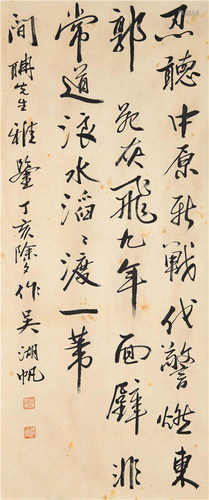 忍聽中原新戰伐驚燃東
郭死灰飛九年面壁非
常道浪水滔〻渡一葦
閬聘先生雅鑒丁亥除夕作吳湖帆